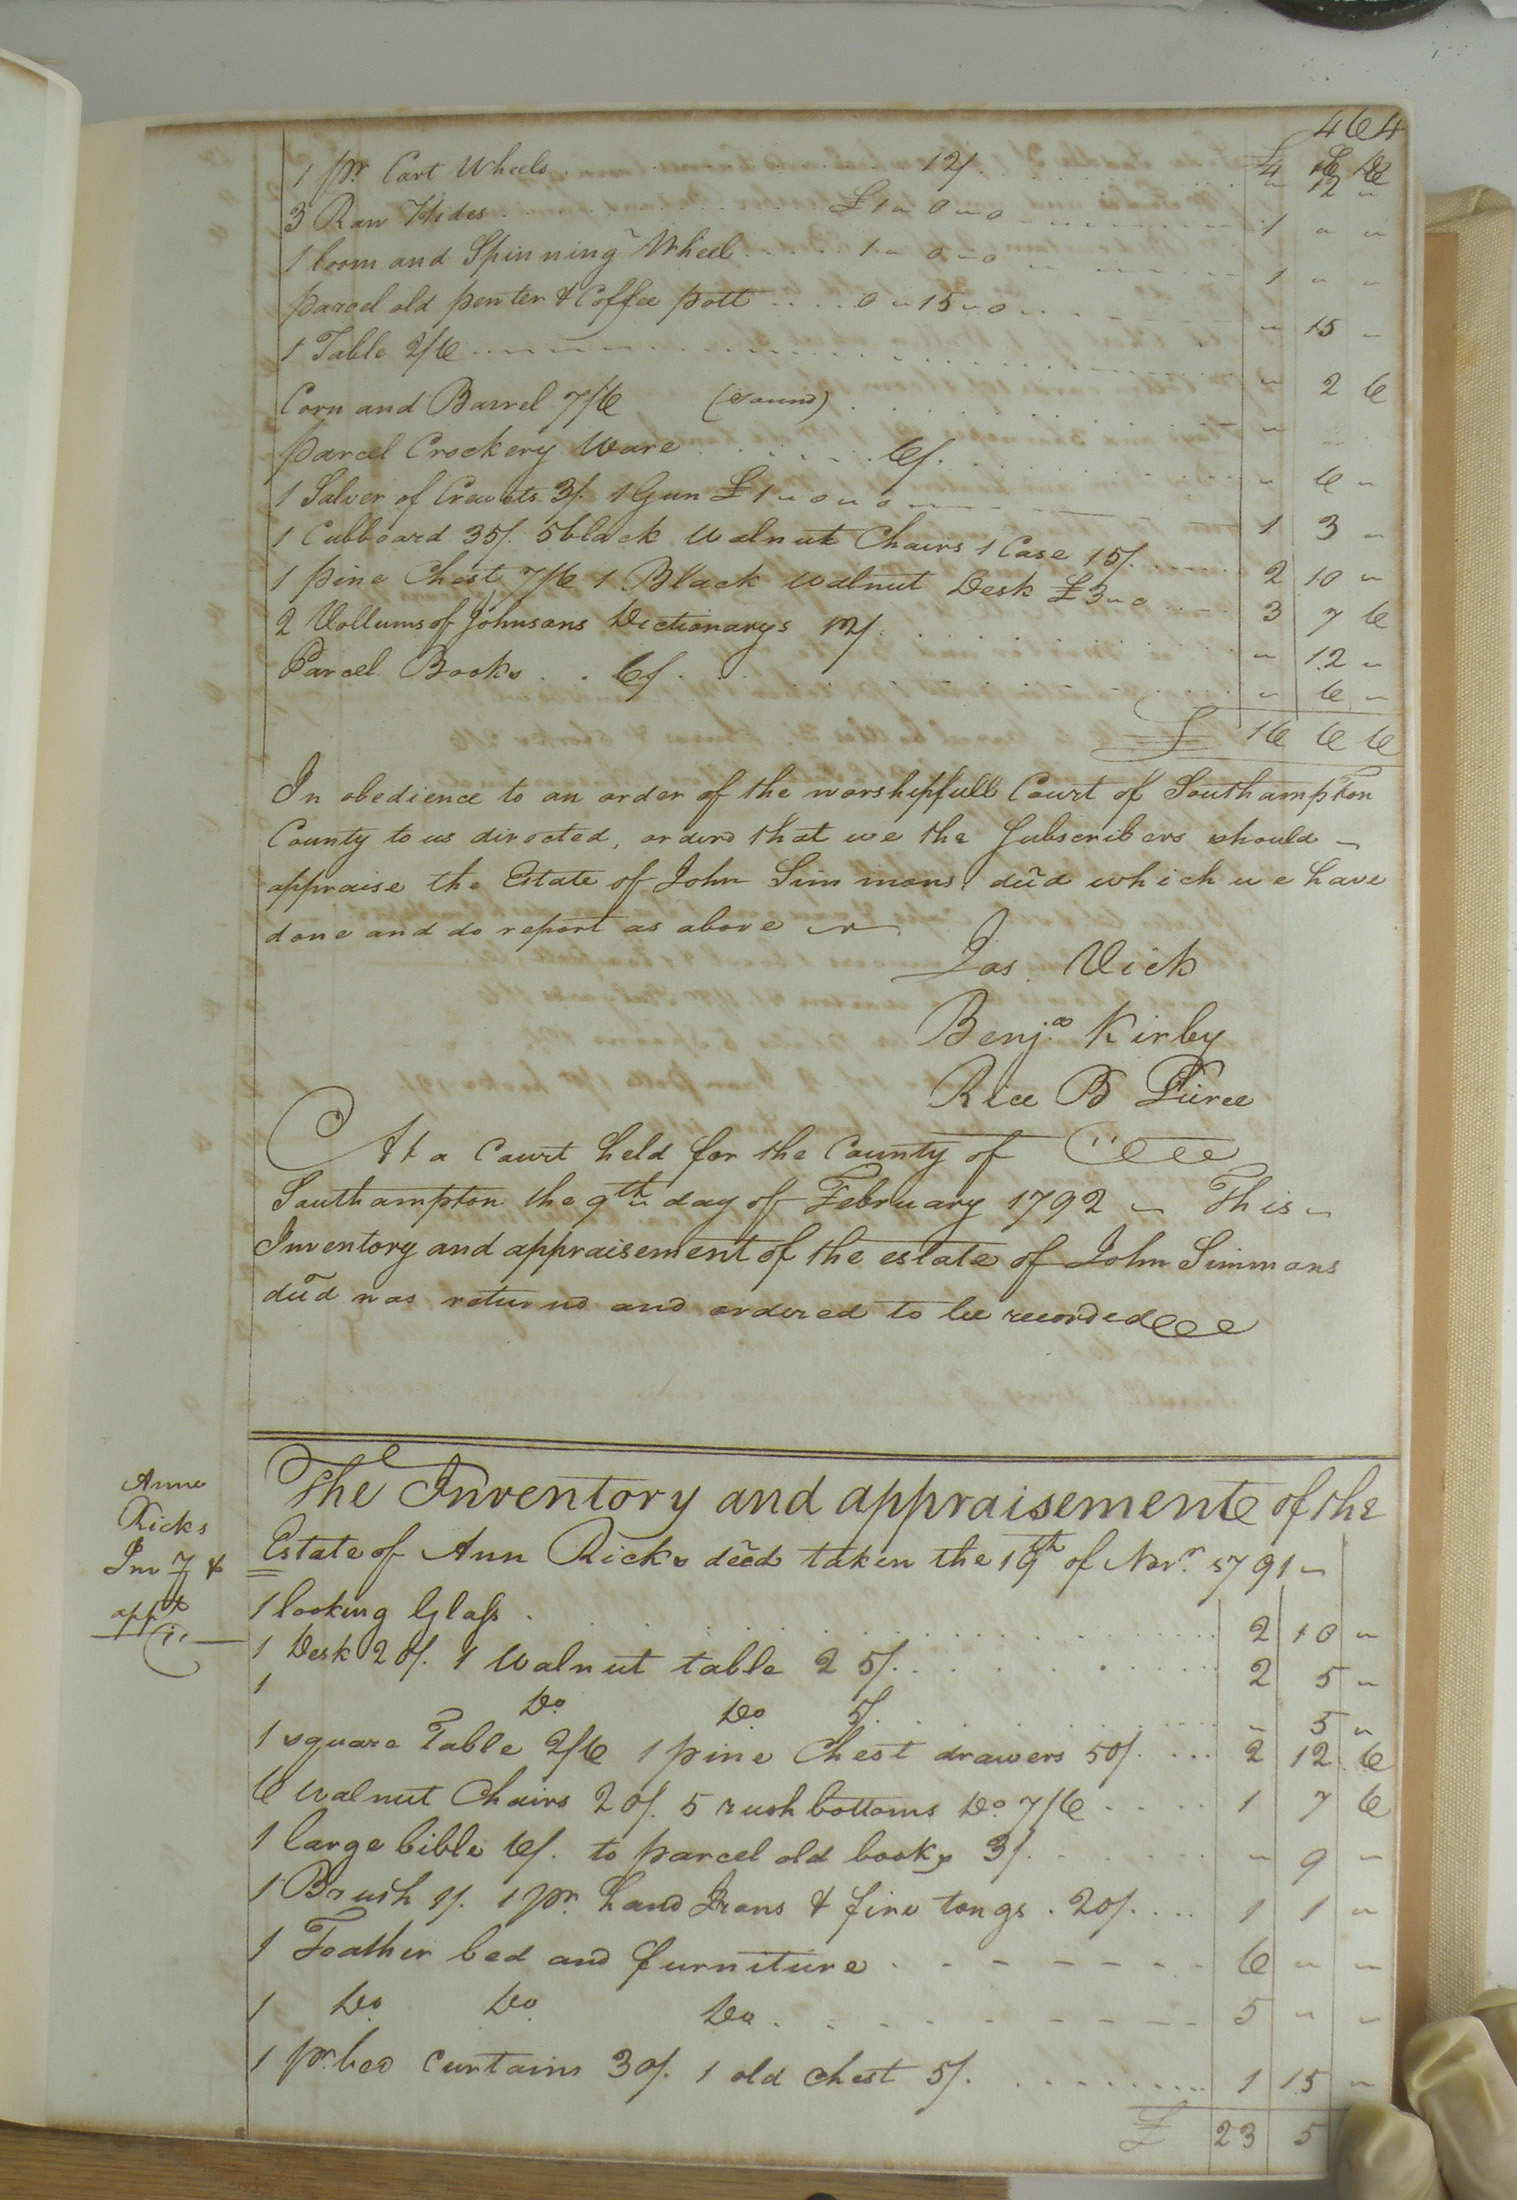 464
£4 16 12
1 pr. Cart Wheels . . . 12/. . . . " 12 "
3 Raw Hides . . . £1 " 0 " 0 . . . 1 " "
1 loom and Spinning Wheel . . . 1 " 0 " 0 . . . 1 " "
parcel old penter & Coffee pott . . . 0 " 15 " 0 . . . " 15 "
1 Table 2/6 . . . " 2 6
Corn and Barrel 7/6 (sauns) . . . "
parcel Crockery Ware . . . 6/. . . . " 6 "
1 Salver of Crewets 3/. 1 Gun £1 " 0 " 0 . . . 1 3 "
1 Cubboard 35/. 5 black Walnut Chairs 1 Case 15/. . . . 2 10 "
1 pine Chest 7/6 1 Black Walnut Desk £3 " 0 . . . 3 7 6
2 Vollums of Johnsons Dictionarys 12/. . . . " 12 "
Parcel Books . . 6/. . . . " 6 "
£ 16 6 6
In obedience to an order of the worshipfull Court of Southampton
County to us directed, orderd that we the Subscribers should
appraise the Estate of John Simmons decd which we have
done and do report as above
Jas. Vick
Benja. Kirby
Rice B Pierce
At a Court held for the County of
Southampton the 9th day of February 1792 This
Inventory and appraisement of the estate of John Simmons
decd was returnd and ordered to be recorded
Anne
Ricks
Inv y &
appt
The Inventory and appraisemente of the
Estate of Ann Ricks decd taken the 19th of Novr. 1791
1 looking Glass . . . 2 10 "
1 Desk 20/. 1 Walnut table 25/. . . . 2 5 "
1 Do Do 5/. . . . " 5 "
1 square Table 2/6 1 pine Chest drawers 50/. . . . 2 12 6
6 Walnut Chairs 20/. 5 rush bottoms Do. 7/6 . . . 1 7 6
1 large bible 6/. to parcel old books 3/. . . . " 9 "
1 Brush 1/. 1 pr. hand Irons & fire tongs . 20/. . . . 1 1 "
1 Feather bed and furniture . . . 6 " "
1 Do Do Do . . . 5 " "
1 pr. bed Curtains 30/. 1 old Chest 5/. . . . 1 15 "
£ 23 5